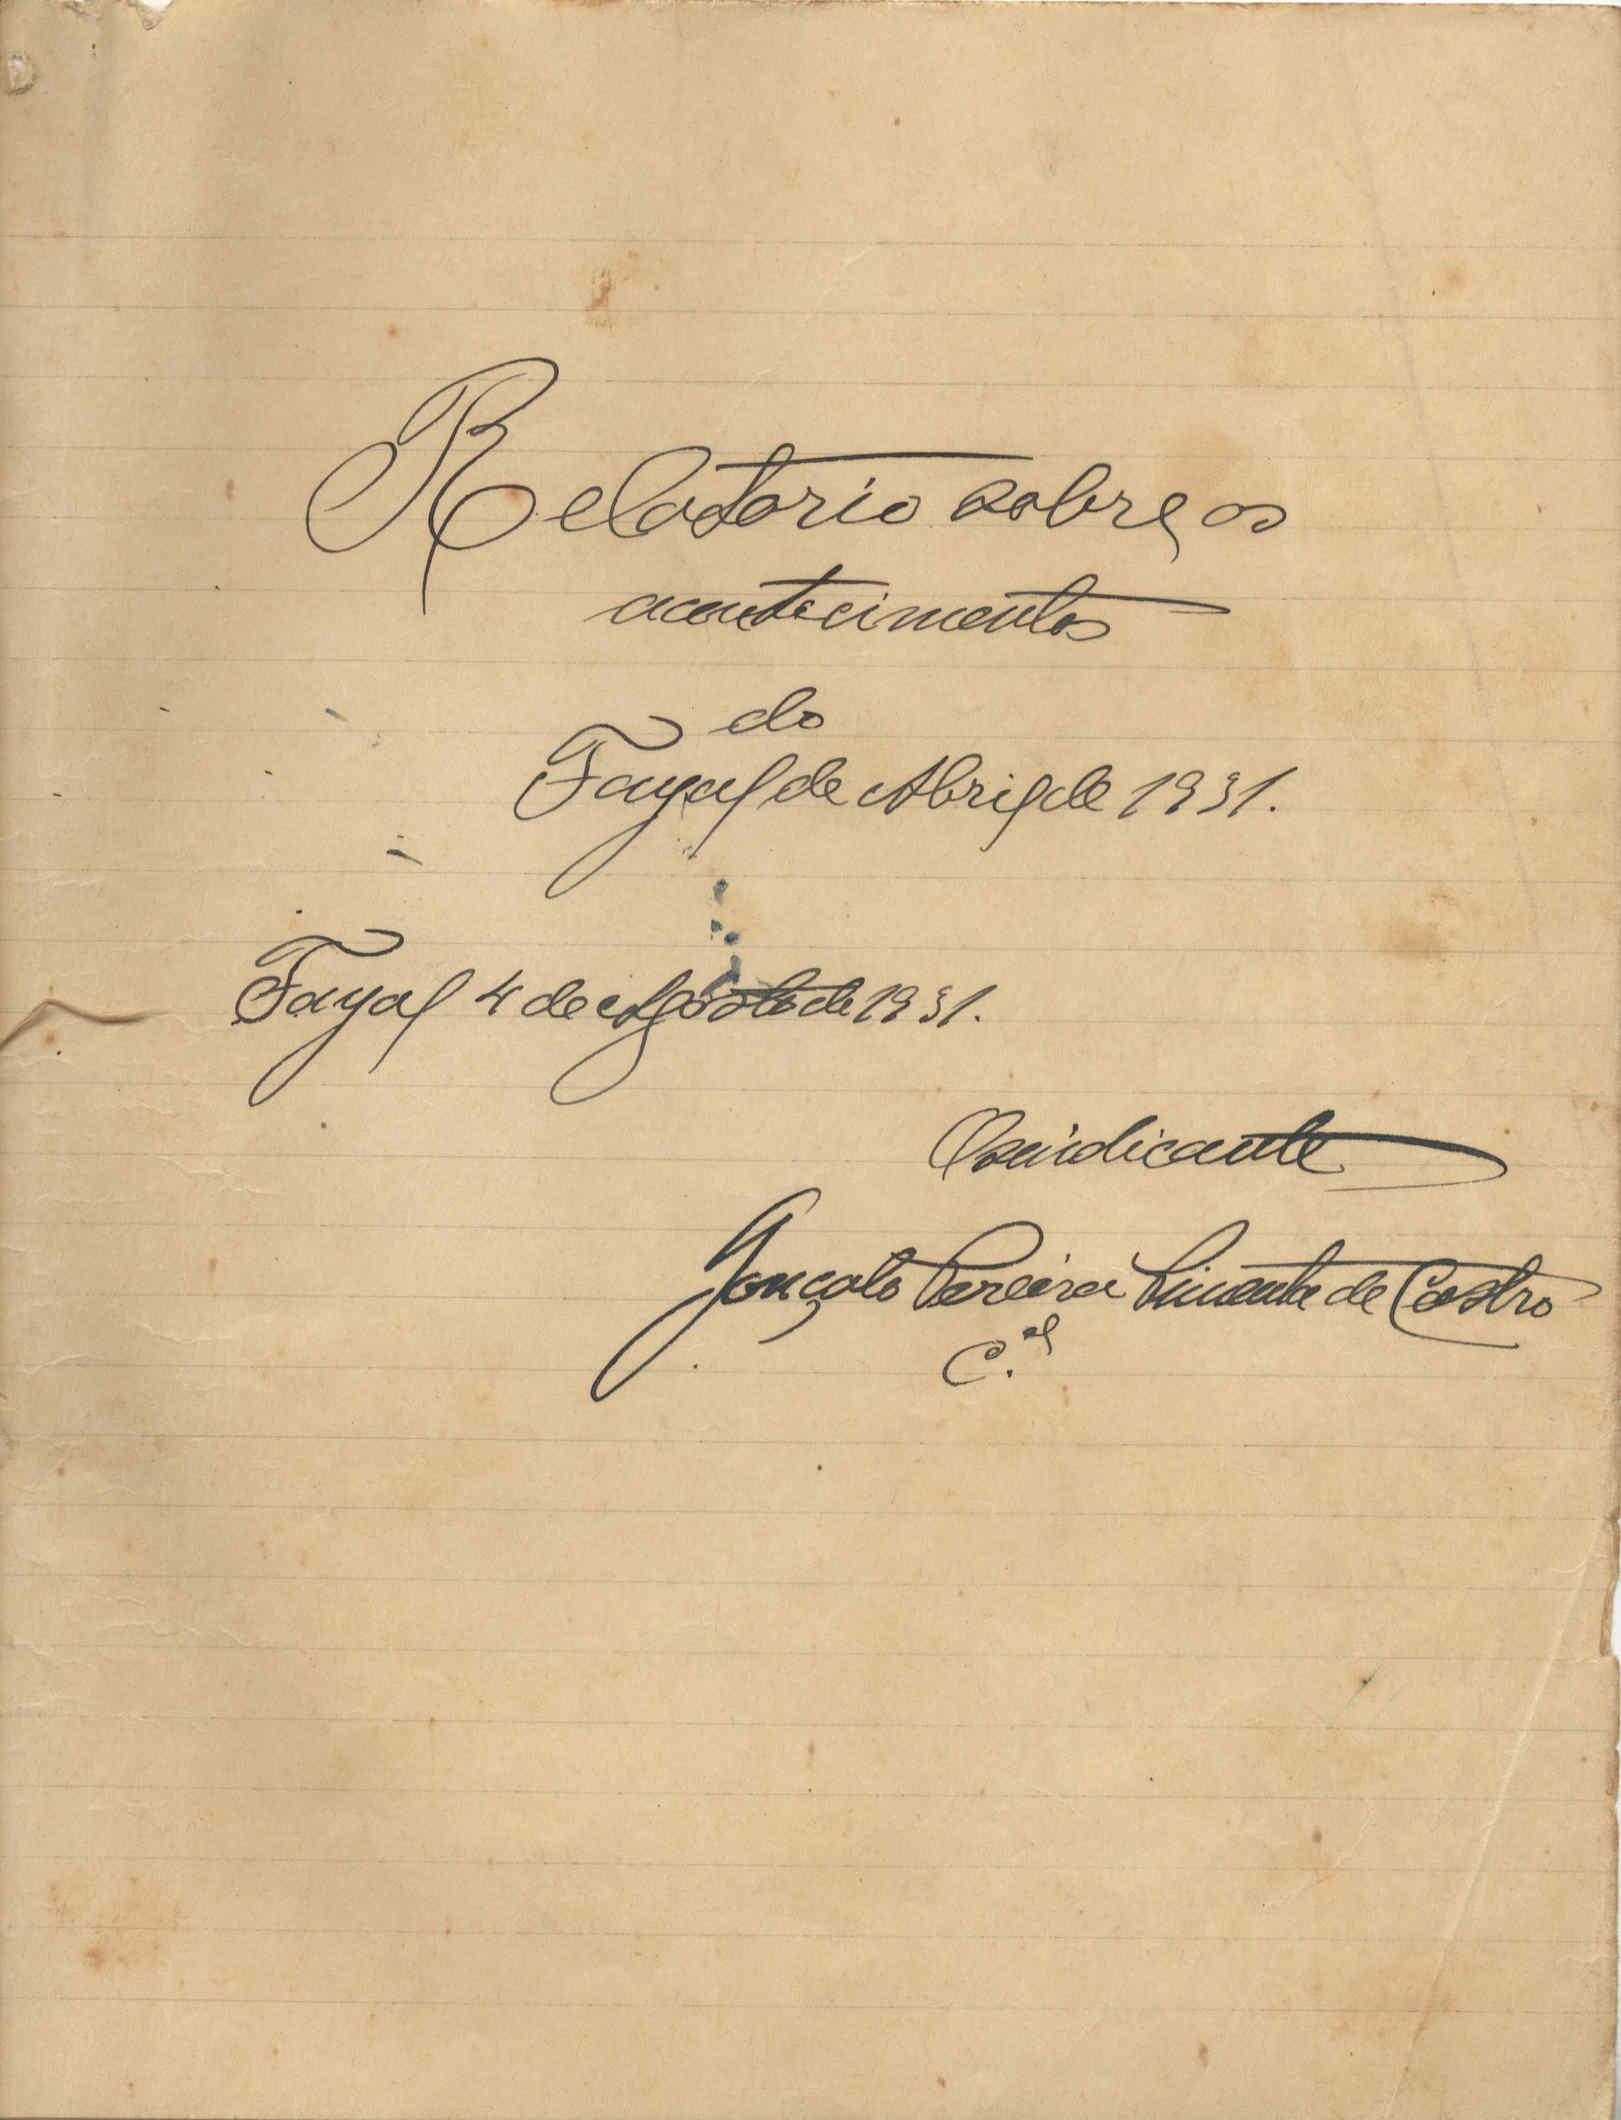 Relatorio sobre os
acontecimentos
do
Fayal de Abril de 1931.
Fayal 4 de Agosto de 1931.
O sindicante
Gonçalo Pereira Pimenta de Castro
C.el